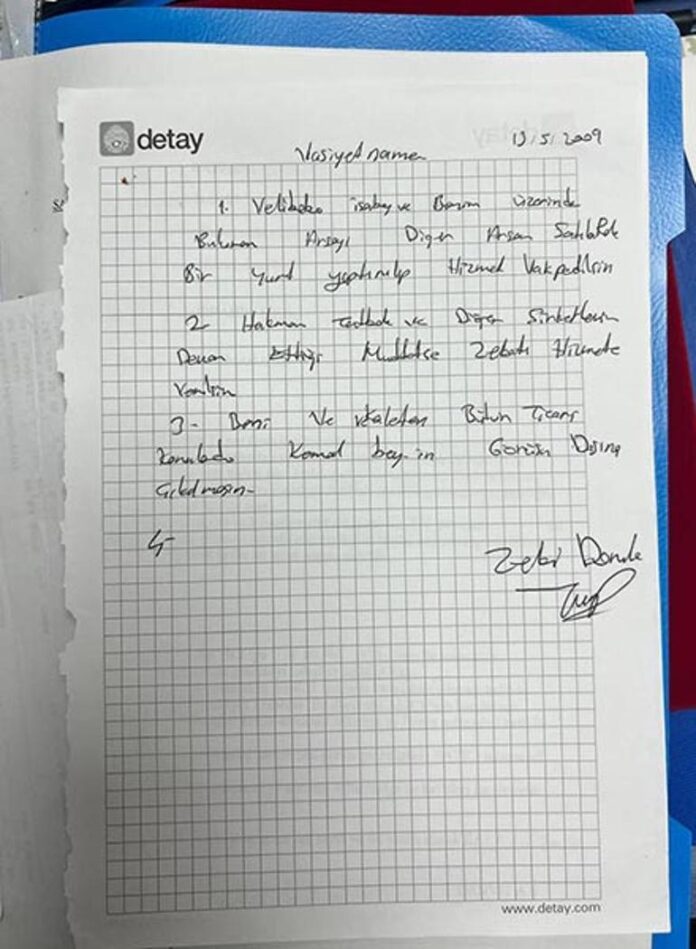 detay
Vasiyetname
13.5.2009
1. Velibaba isabey ve Benim üzerinde
Bulunan Arsayı Diğer Arsan
Bir yurd yaptırılıp Hizmet Vakpedilsin
2 Hakman ve Diğer
Devam Ettiği Müddetçe Zekatı Hizmete
Verilsin
3- Beni Ve Bütün Ticari
Konularda Kemal bey-in Görüşü Dışına
Çıkılmasın-
4-
Zeki
www.detay.com